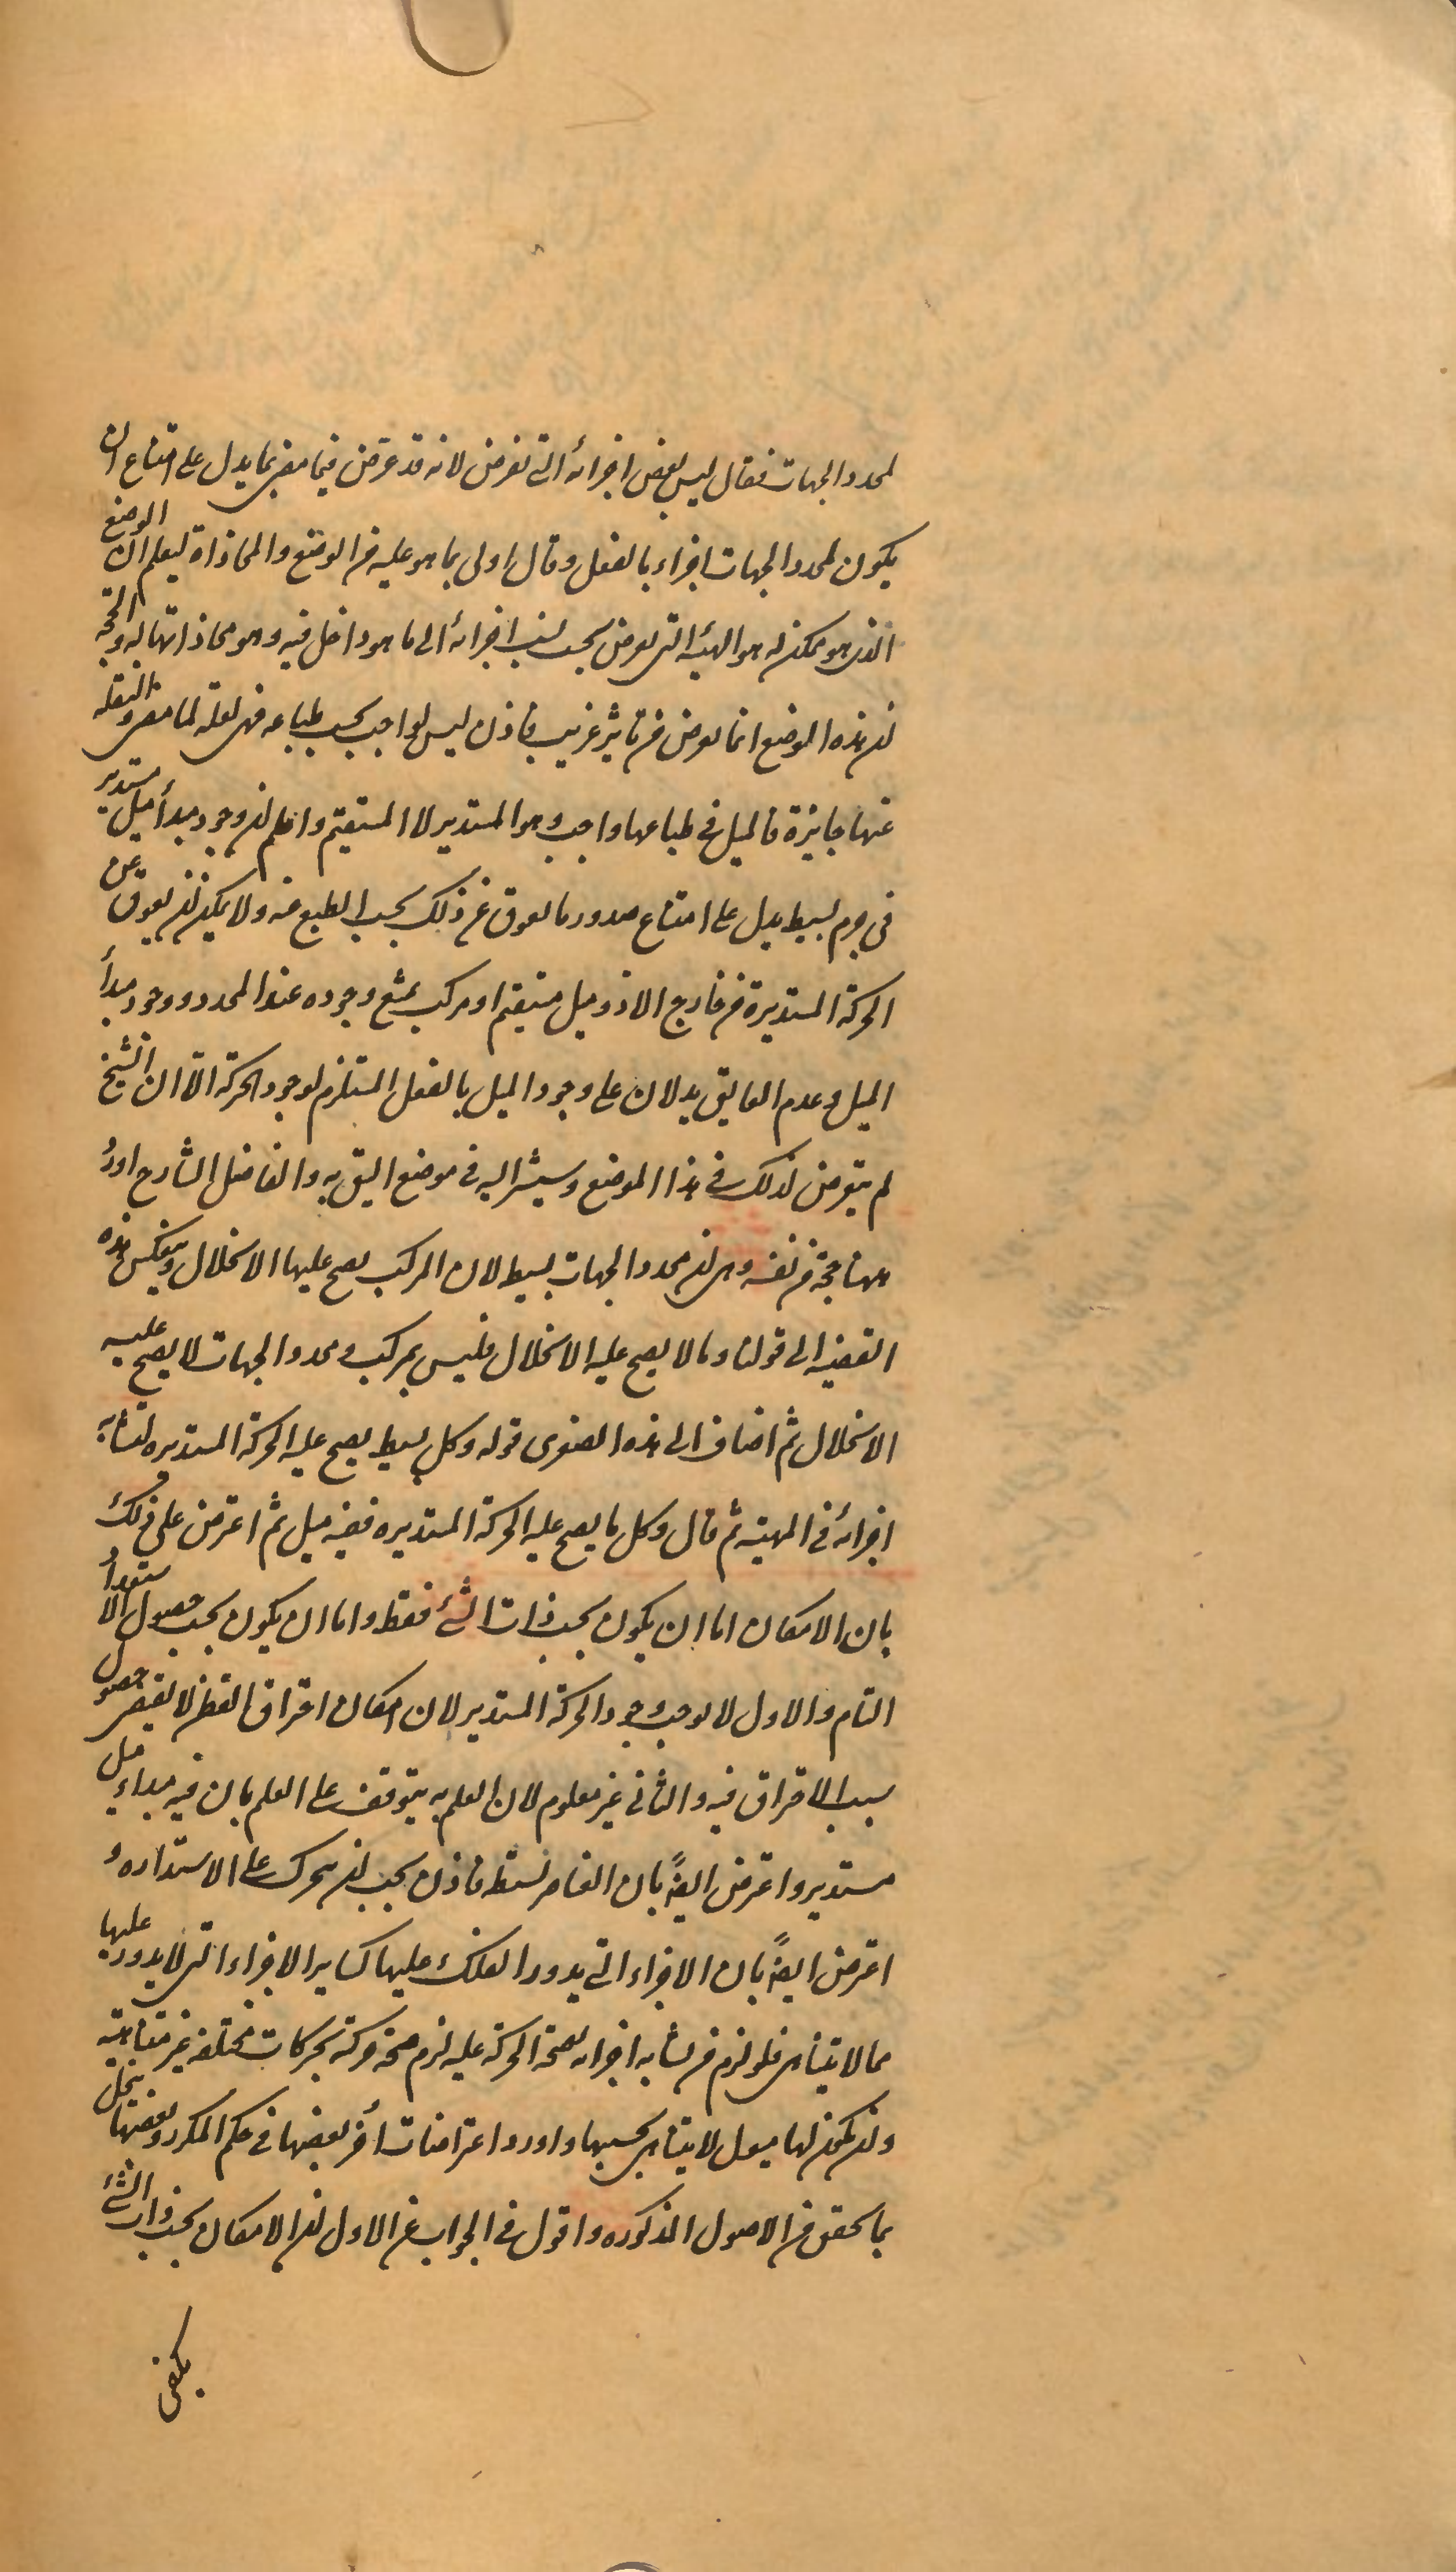 لمحدد الجهات فقال ليس بعض اجزائه التى تفرض لانه قد عرض فيما مضى بما يدل على امتناع ان
يكون لمحدد الجهات اجزاء بالفعل وقال اولى بما هو عليه من الوضع والمحاذاة ليعلم ان الوضع
الذى هو ممكن له هو الهيئه التى تعرض بحسب نسب اجزائه الى ما هو داخل فيه وهو محاذاتها له والحجة
ان هذه الموضع انما تعرض من تاثير غريب فاذن ليس بواجب بحسب طباعه فهى لعلة لما مضى والنقله
عنها جايزة فالميل فى طباعها واجب وهو المستدير لا المستقيم واعلم ان وجود مبدأ ميل مستدير
فى جرم بسيط يدل على امتناع صدور ما يعوق عن ذلك بحسب الطبع عنه ولا يمكن ان يعوق عن
الحركة المستديرة من خارج الا ذو ميل مستقيم او مركب يمتنع وجوده عند المحدد ووجود مبدأ
الميل وعدم العايق يدلان على وجود الميل بالفعل المستلزم لوجود الحركة الا ان الشيخ
لم يتعرض لذلك فى هذا الموضع وسيشير اليه فى موضع اليق به والفاضل الشارح اورد
ههنا حجة من نفسه وهى ان محدد الجهات بسيط لان المركب يصح عليها الانحلال وينعكس هذه
القضيه الى قولنا وما لا يصح عليه الانحلال فليس بمركب ومحدد الجهات لا يصح عليه
الانحلال ثم اضاف الى هذه الصغرى قوله وكل بسيط يصح عليه الحركة المستديره لتشابه
اجزائه فى المهية ثم قال وكل ما يصح عليه الحركة المستديره ففيه ميل ثم اعترض على ذلك
بان الامكان اما ان يكون بحسب ذات الشئ فقط واما ان يكون بحسب حصول الاستعداد
التام والاول لا يوجب وجود الحركة المستدير لان امكان احتراق القطن لا يقتضى حصول
سبب الاحتراق فيه والثانى غير معلوم لان العلم به يتوقف على العلم بان فيه مبداء ميل
مستدير واعترض ايضاً بان العناصر بسيطة فاذن يجب ان يتحرك على الاستداره و
اعترض ايضاً بان الاجزاء التى يدور الفلك عليها كساير الاجزاء التى لا يدور عليها
مما لا يتناهى فلو لزم من تشابه اجزائه لصحة الحركة عليه لزم صحة حركته بحركات مختلفه غير متناهيه
وان يكون لها ميول لا يتناهى بحسبها واورد اعتراضات أخر بعضها فى حكم المكرر وبعضها ينحل
بما تحقق من الاصول المذكوره واقول فى الجواب عن الاول ان الامكان بحسب ذات الشئ
يكفى